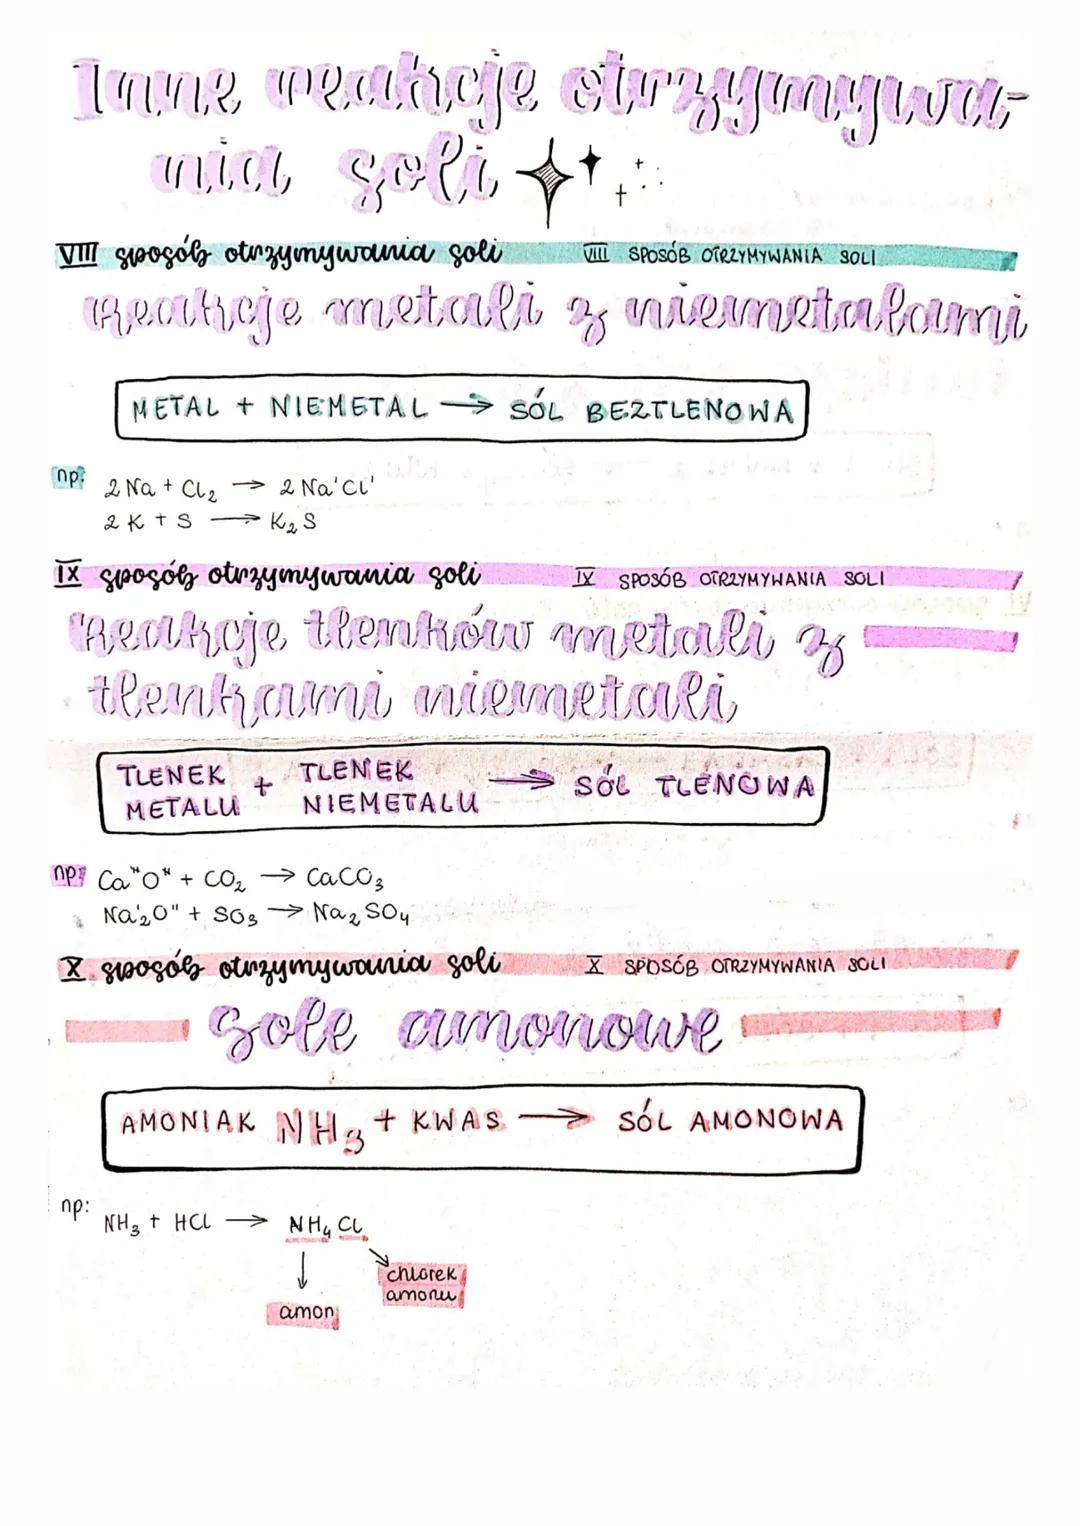 Inne reakcje otrzymywa-
nia soli
VIII sposób otrzymywania soli VIII SPOSÓB OTRZYMYWANIA SOLI
Reakcje metali z niemetalami
METAL + NIEMETAL → SÓL BEZTLENOWA
np: 2 Na + Cl₂ → 2 Na'Cl'
2 K + S → K₂S
IX sposób otrzymywania soli IX SPOSÓB OTRZYMYWANIA SOLI
Reakcje tlenków metali z
tlenkami niemetali
TLENEK METALU + TLENEK NIEMETALU → SÓL TLENOWA
np: Ca"O" + CO₂ → CaCO₃
Na'₂O" + SO₃ → Na₂SO₄
X sposób otrzymywania soli X SPOSÓB OTRZYMYWANIA SOLI
Sole amonowe
AMONIAK NH₃ + KWAS → SÓL AMONOWA
np: NH₃ + HCl → NH₄Cl
chlorek
amonu
amon